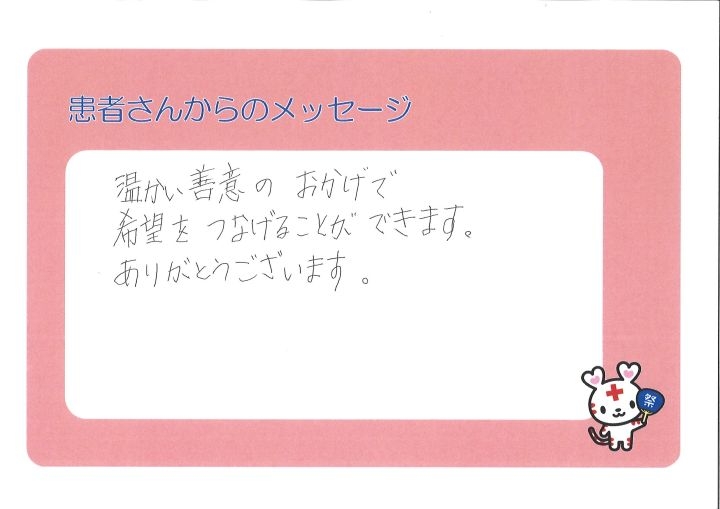 患者さんからのメッセージ
温かい善意の おかげで
希望を つなげることが できます。
ありがとうございます。
祭